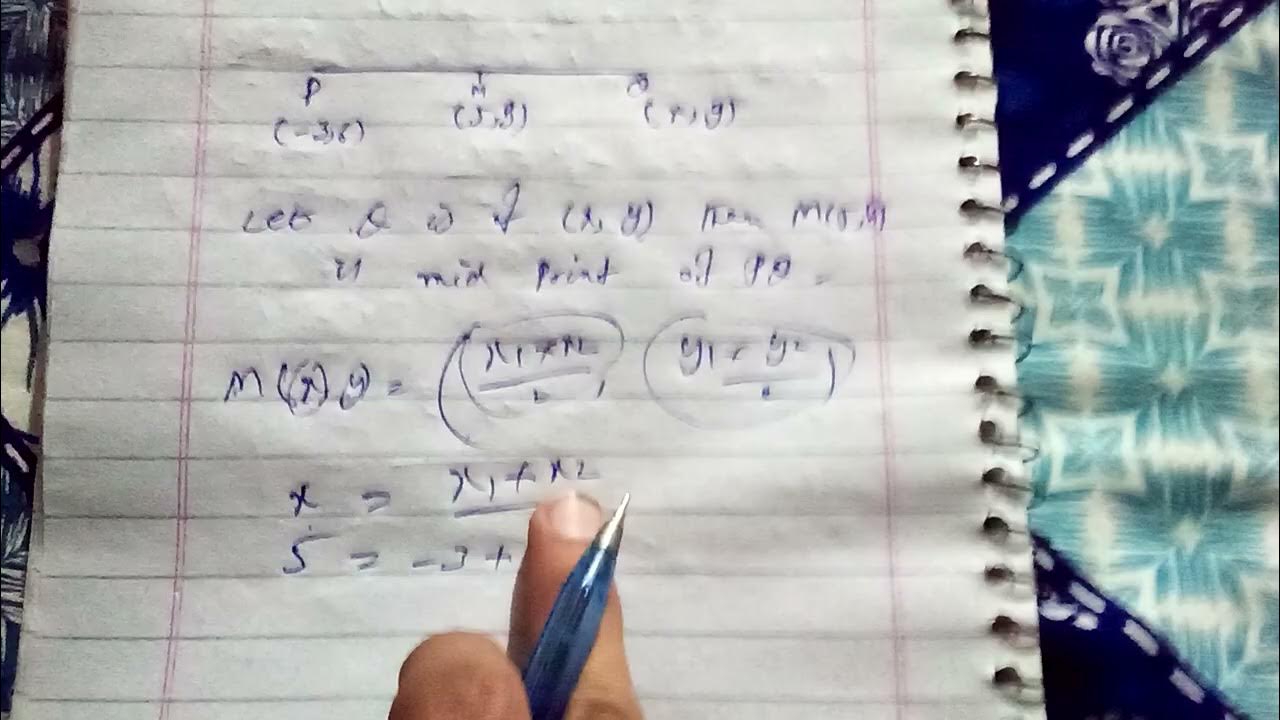 P M Q
(-3,6) (5,8) (x, y)
Let Q is of (x, y) then M(5,8)
is mid point of PQ.
M(x) y) = ((x1+x2/2) (y1+y2/2)
x = x1+x2
5 = -3+